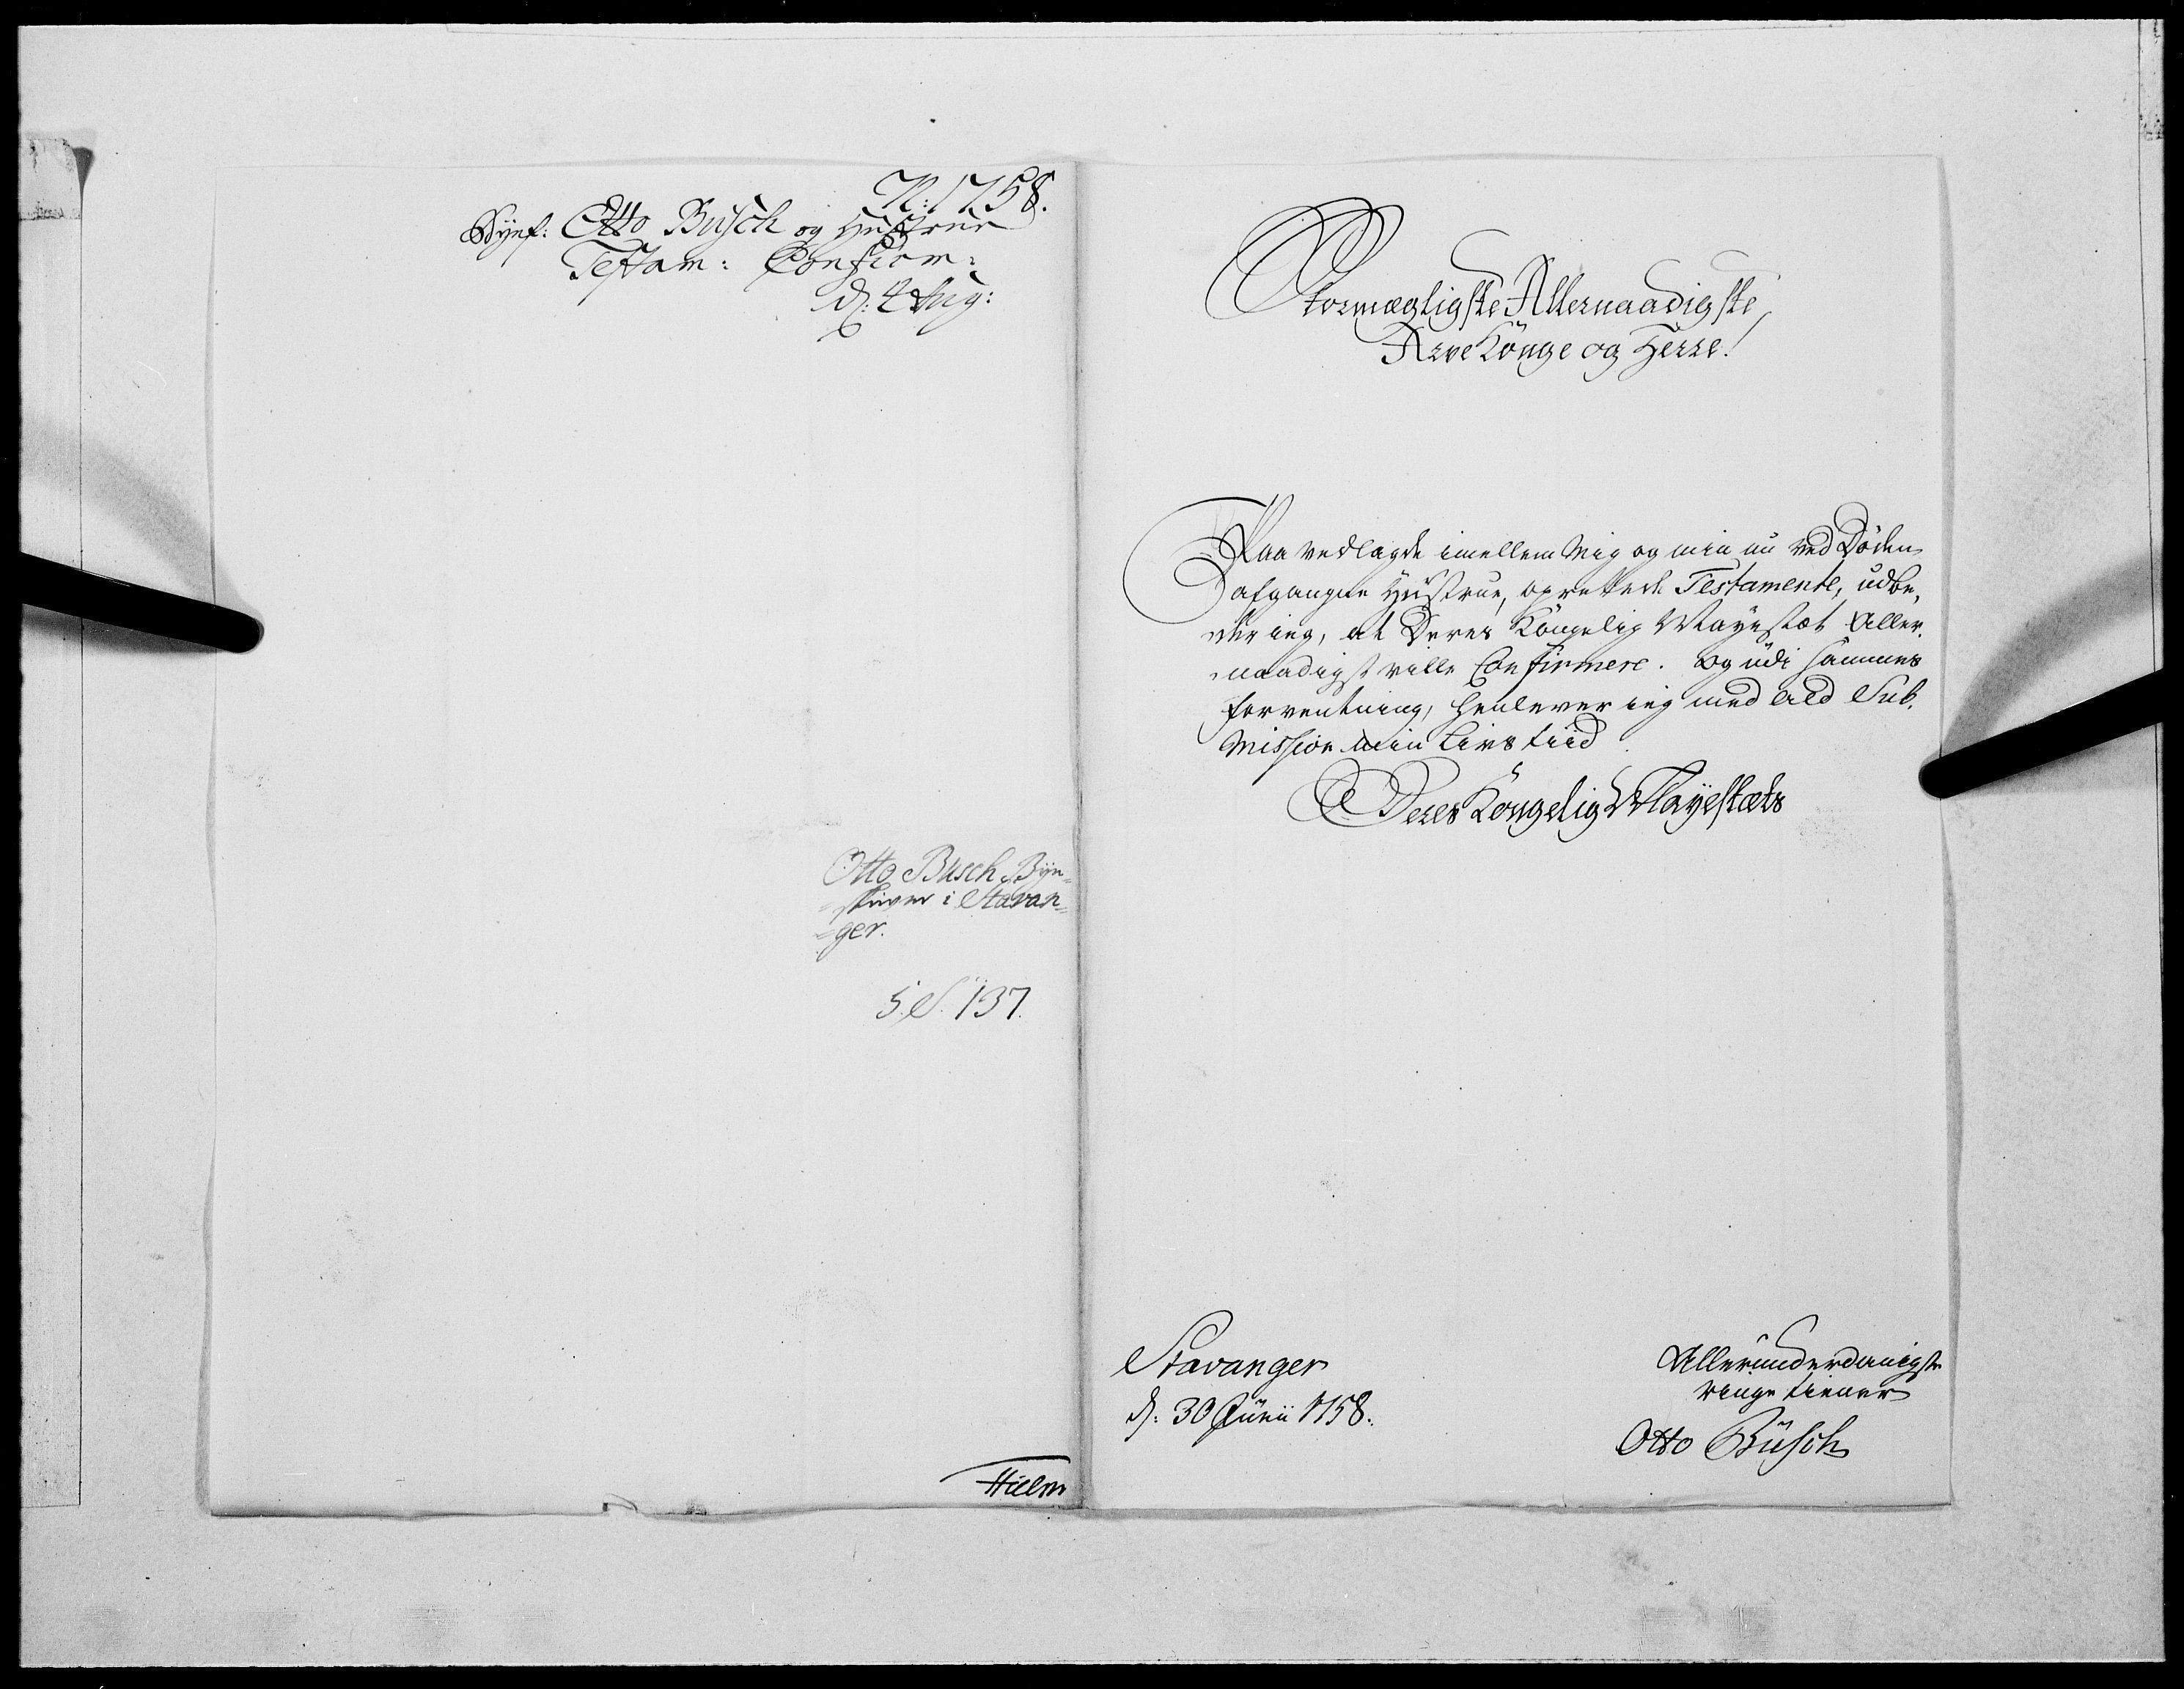 N: 1758.
Byef: Otto Busch og Hustrue
Testam: Confirm:
d: 4 Aug:
Otto Busch Bye-
-skriver i Stavan=
=ger.
5. S. 137.
Hielm
Stormægtigste Allernaadigste
Arve Konge og Herre!
Paa vedlagde imellem Mig og min nu ved Døden
afgangne Hustrue, oprettede Testamente, udbe,
der ieg, at Deres Kongelig Mayestæt Aller,
naadigst ville Confirmere. og udi sammes
forventning, henlever ieg med All Sub,
Mission min Livs tiid.
Deres Kongelig Mayestæts
Stavanger
d: 30 Junii 1758.
Allerunderdanigste
ringe tiener
Otto Büsch